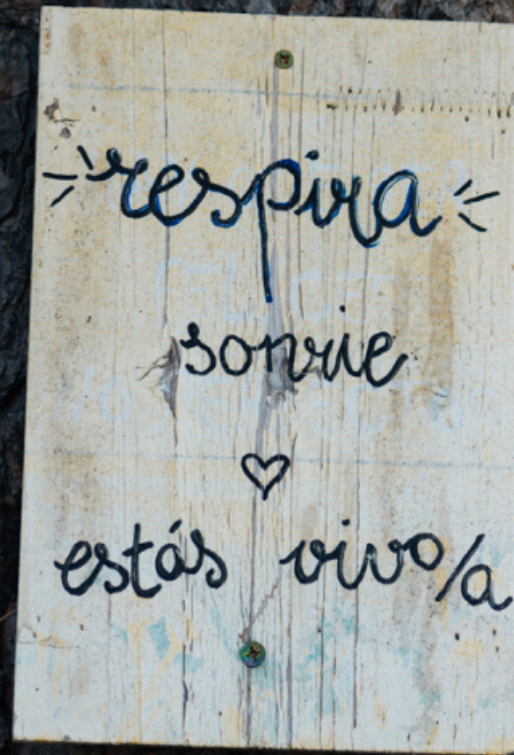 respira
sonrie
♡
estás vivo/a